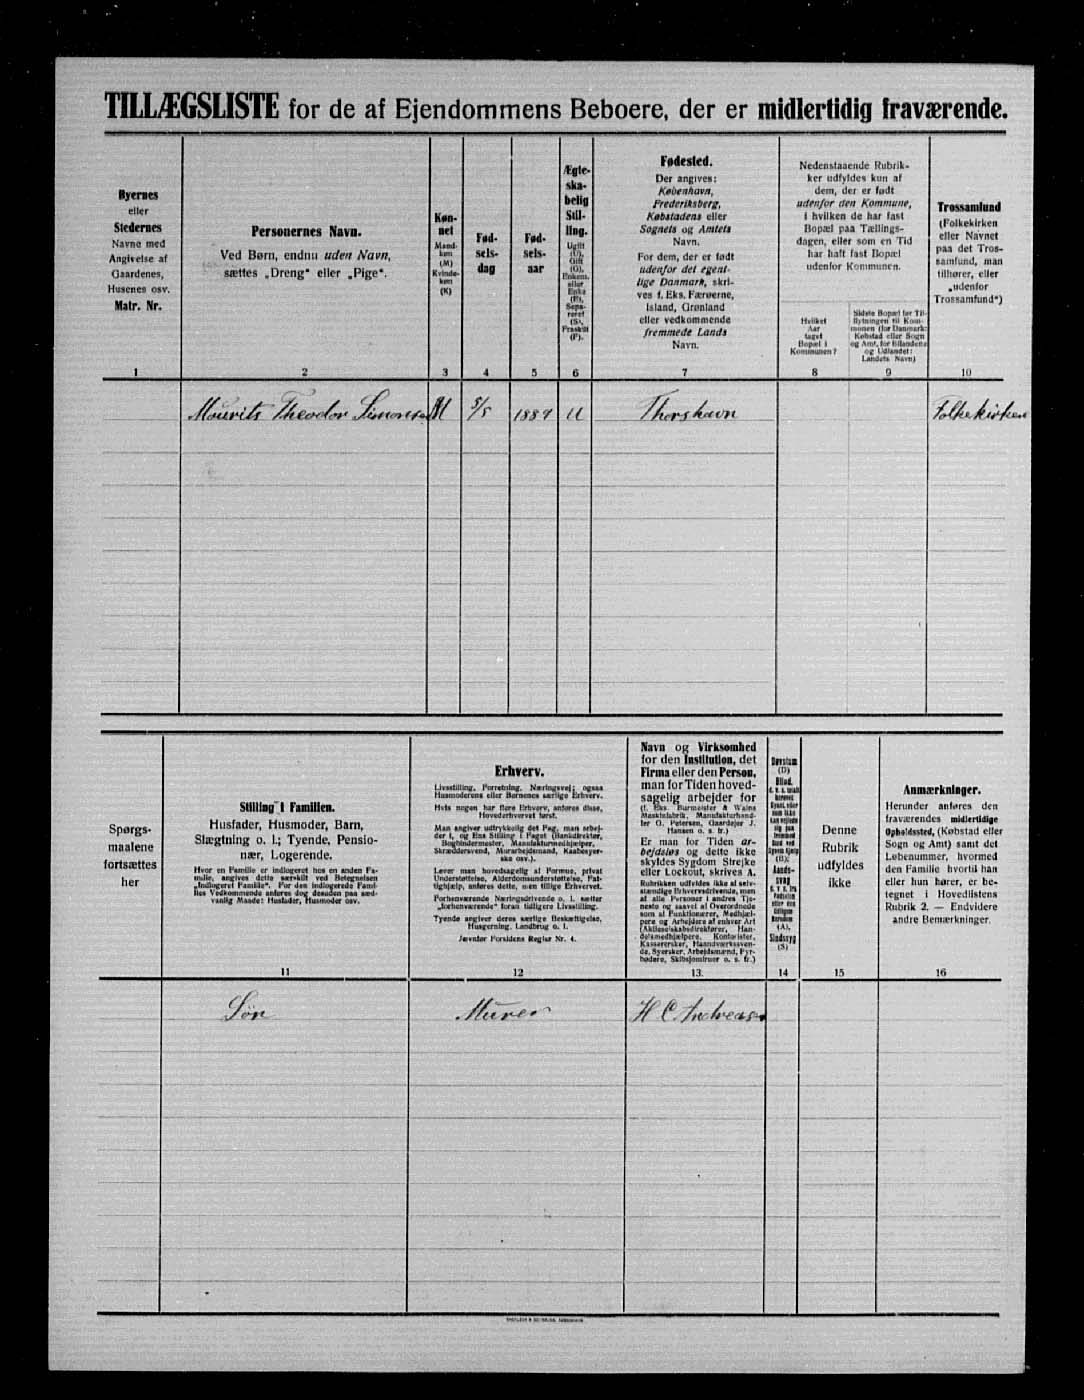 TILLÆGSLISTE for de af Ejendommens Beboere, der er midlertidig fraværende.
Byernes
eller
Stedernes
Navne med
Angivelse af
Gaardenes,
Husenes osv.
Matr. Nr.
1
Personernes Navn.
Ved Børn, endnu uden Navn,
sættes „Dreng“ eller „Pige“.
2
Køn-
net
Mand-
køn
(M)
Kvinde-
køn
(K)
3
Fød-
sels-
dag
4
Fød-
sels-
aar
5
Ægte-
ska-
belig
Stil-
ling.
Ugift
(U),
Gift
(G),
Enkem.
eller
Enke
(E),
Sepa-
reret
(S),
Fraskilt
(F).
6
Fødested.
Der angives:
København,
Frederiksberg,
Købstadens eller
Sognets og Amtets
Navn.
For dem, der er født
udenfor det egent-
lige Danmark, skri-
ves f. Eks. Færøerne,
Island, Grønland
eller vedkommende
fremmede Lands
Navn.
7
Nedenstaaende Rubrik-
ker udfyldes kun af
dem, der er født
udenfor den Kommune,
i hvilken de har fast
Bopæl paa Tællings-
dagen, eller som en Tid
har haft fast Bopæl
udenfor Kommunen.
Hvilket
Aar
taget
Bopæl i
Kommunen?
8
Sidste Bopæl før Til-
flytningen til Kom-
munen (for Danmark:
Købstad eller Sogn
og Amt, for Bilandene
og Udlandet:
Landets Navn)
9
Trossamfund
(Folkekirken
eller Navnet
paa det Tros-
samfund, man
tilhører, eller
„udenfor
Trossamfund“)
10
Mourits Theodor Simonsen M 5/5 1889 U Thorshavn Folkekirken
Spørgs-
maalene
fortsættes
her
Stilling i Familien.
Husfader, Husmoder, Barn,
Slægtning o. l.; Tyende, Pensio-
nær, Logerende.
Hvor en Familie er indlogeret hos en anden Fa-
milie, angives dette særskilt ved Betegnelsen
„Indlogeret Familie“. For den indlogerede Fami-
lies Vedkommende anføres dog desuden paa sæd-
vanlig Maade: Husfader, Husmoder osv.
11
Erhverv.
Livsstilling, Forretning, Næringsvej; ogsaa
Husmoderens eller Børnenes særlige Erhverv.
Hvis nogen har flere Erhverv, anføres disse,
Hovederhvervet først.
Man angiver udtrykkelig det Fag, man arbej-
der i, og Ens Stilling i Faget (Bankdirektør,
Bogbindermester, Manufakturmedhjælper,
Skræddersvend, Murarbejdsmand, Kaabesyer-
ske osv.).
Lever man hovedsagelig af Formue, privat
Understøttelse, Alderdomsunderstøttelse, Fat-
tighjælp, anføres dette, men tillige Erhvervet.
Forhenværende Næringsdrivende o. l. sætter
„forhenværende“ foran tidligere Livsstilling.
Tyende angiver deres særlige Beskæftigelse,
Husgerning, Landbrug o. l.
Jævnfør Forsidens Regler Nr. 4.
12
Navn og Virksomhed
for den Institution, det
Firma eller den Person,
man for Tiden hoved-
sagelig arbejder for
(f. Eks. Burmeister & Wains
Maskinfabrik, Manufakturhand-
ler G. Petersen, Gaardejer J.
Hansen o. s. fr.)
Er man for Tiden ar-
bejdsløs og dette ikke
skyldes Sygdom Strejke
eller Lockout, skrives A.
Rubrikken udfyldes ikke af selv-
stændige Erhvervsdrivende, men
af alle Personer i andres Tje-
neste og saavel af Overordnede
som af Funktionærer, Medhjæl-
pere og Arbejdere af enhver Art
(Aktieselskabsdirektører, Han-
delsmedhjælpere, Kontorister,
Kasserersker, Haandværkssven-
de, Syersker, Arbejdsmænd, Fyr-
bødere, Skibsjomfruer o. s. fr.)
13.
Døvstum
(D)
Blind,
(B);
Aands-
svag
(A),
Sindssyg
(S)
14
Denne
Rubrik
udfyldes
ikke
15
Anmærkninger.
Herunder anføres den
fraværendes midlertidige
Opholdssted, (Købstad eller
Sogn og Amt) samt det
Løbenummer, hvormed
den Familie hvortil han
eller hun hører, er be-
tegnet i Hovedlistens
Rubrik 2. — Endvidere
andre Bemærkninger.
16
Søn Murer H C Andreasen